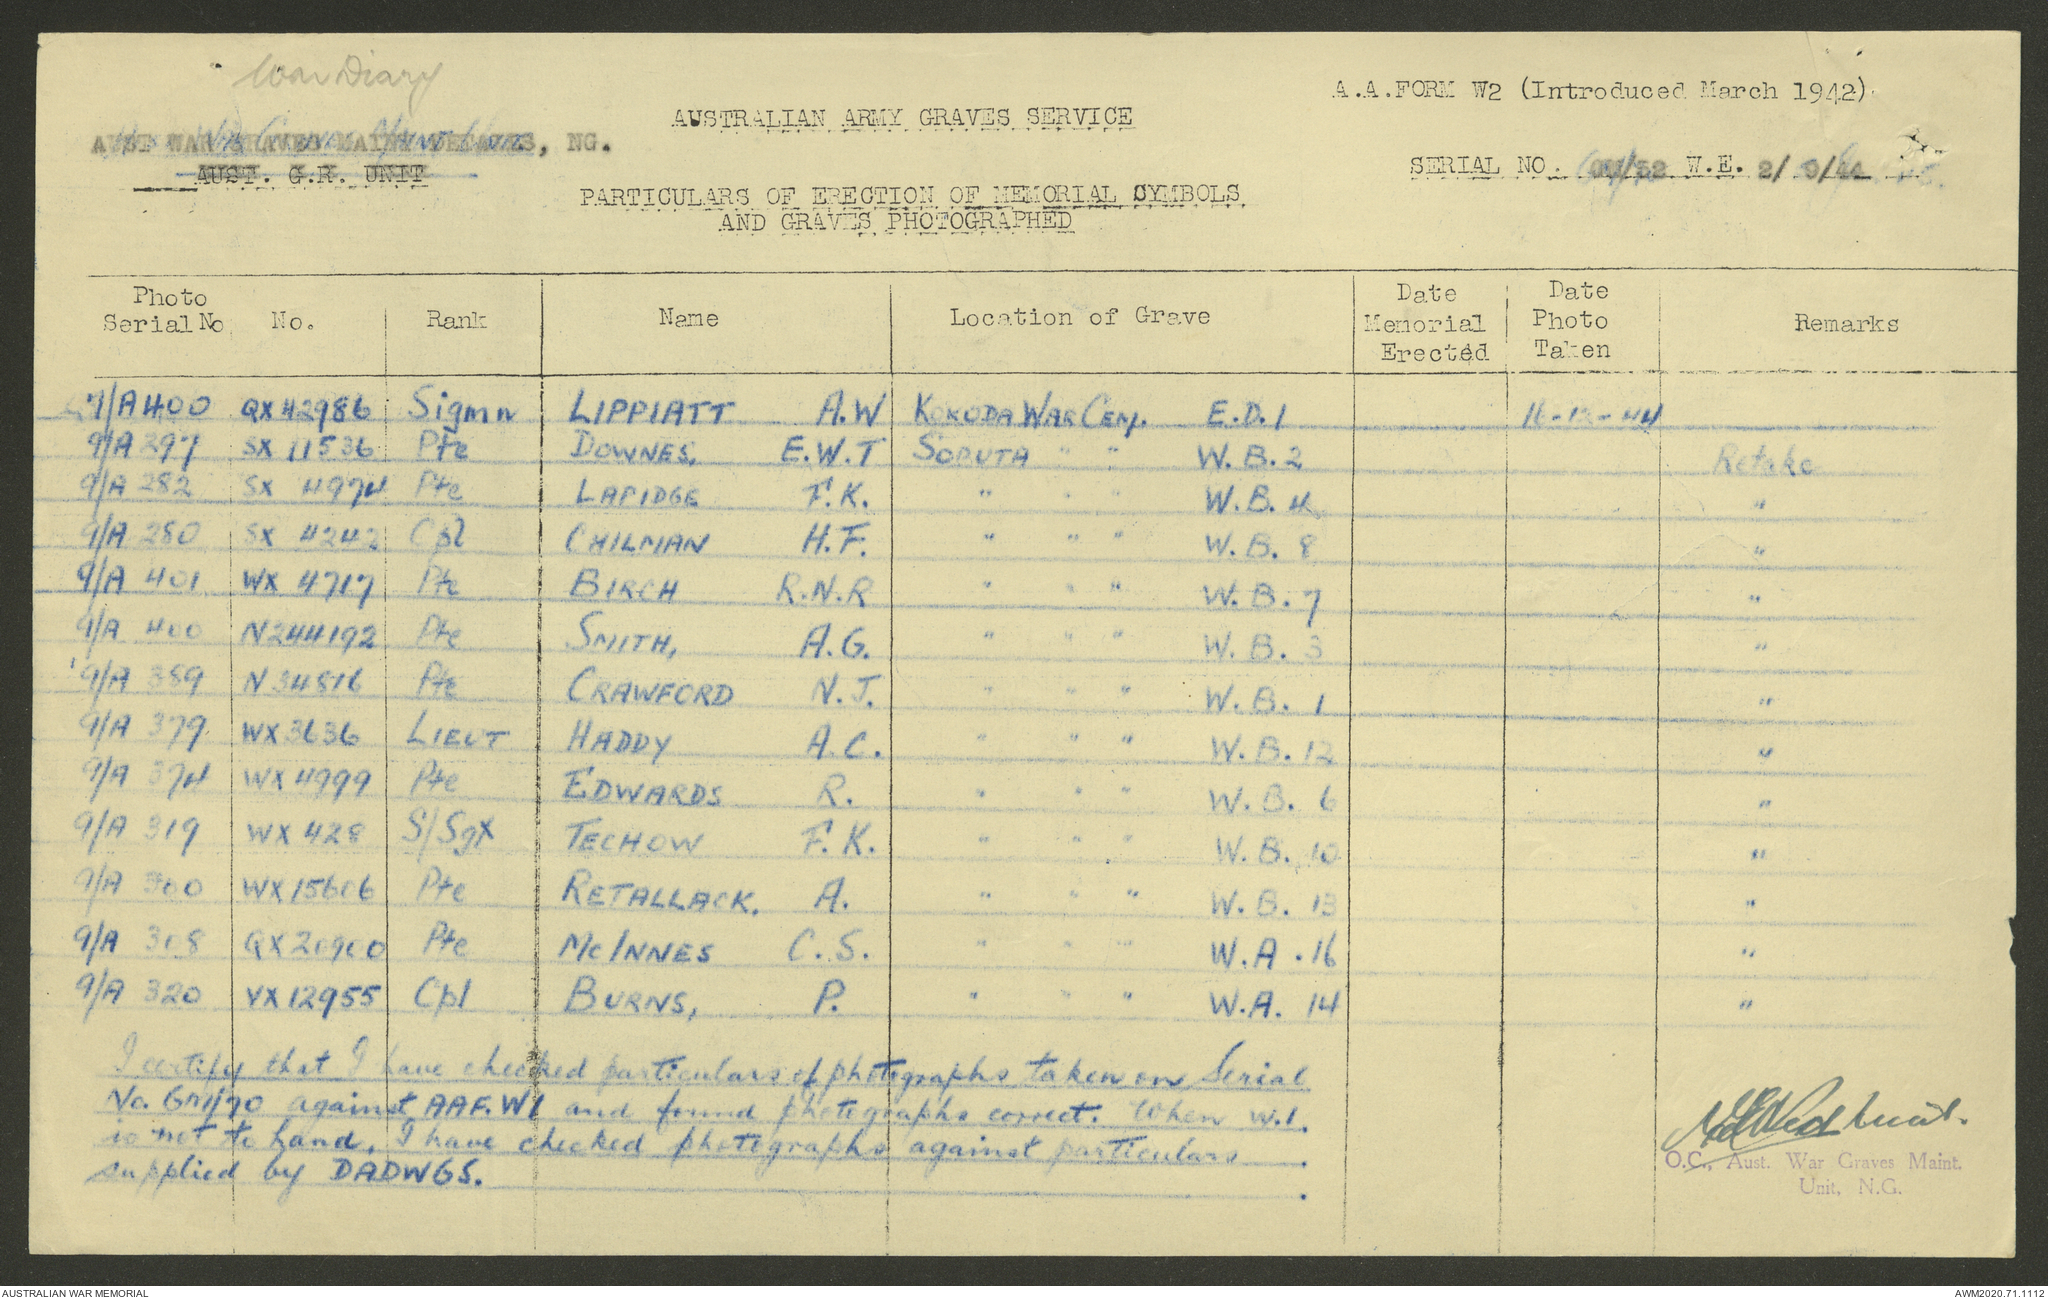 War Diary
A.A.FORM W2 (Introduced March 1942)
AUSTRALIAN ARMY GRAVES SERVICE
AUST WAR GRAVES MAINT, NG.
AUST. G.R. UNIT
SERIAL NO. W.E. 2/
PARTICULARS OF ERECTION OF MEMORIAL SYMBOLS
AND GRAVES PHOTOGRAPHED
Photo Serial No. No. Rank Name Location of Grave Date Memorial Erected Date Photo Taken Remarks
7/A400 QX42986 Sigmn LIPPIATT A.W KOKODA WAR CEM. E.D.1 16-12-44
9/A 297 SX 11536 Pte DOWNES, E.W.T SOPUTA " " W.B.2 Retake
9/A 282 SX 4974 Pte LAPIDGE F.K. " " " W.B.4 "
9/A 280 SX 4242 Cpl CHILMAN H.F. " " " W.B.8 "
9/A 401 WX 4717 Pte BIRCH R.N.R " " " W.B.7 "
9/A 400 N244192 Pte SMITH, A.G. " " " W.B.3 "
9/A 389 N34816 Pte CRAWFORD N.J. " " " W.B.1 "
9/A 379 WX3636 LIEUT HADDY A.C. " " " W.B.12 "
9/A 374 WX4999 Pte EDWARDS R. " " " W.B.6 "
9/A 319 WX428 S/Sgt TECHOW F.K. " " " W.B.10 "
9/A 300 WX15606 Pte RETALLACK. A. " " " W.B.13 "
9/A 308 QX20900 Pte McINNES C.S. " " " W.A.16 "
9/A 320 VX12955 Cpl BURNS, P. " " " W.A.14 "
I certify that I have checked particulars of photographs taken on Serial
No. GM/70 against AAF.W1 and found photographs correct. When W.1.
is not to hand, I have checked photographs against particulars
supplied by DADWGS.
O.C., Aust. War Graves Maint.
Unit, N.G.
AUSTRALIAN WAR MEMORIAL
AWM2020.71.1112